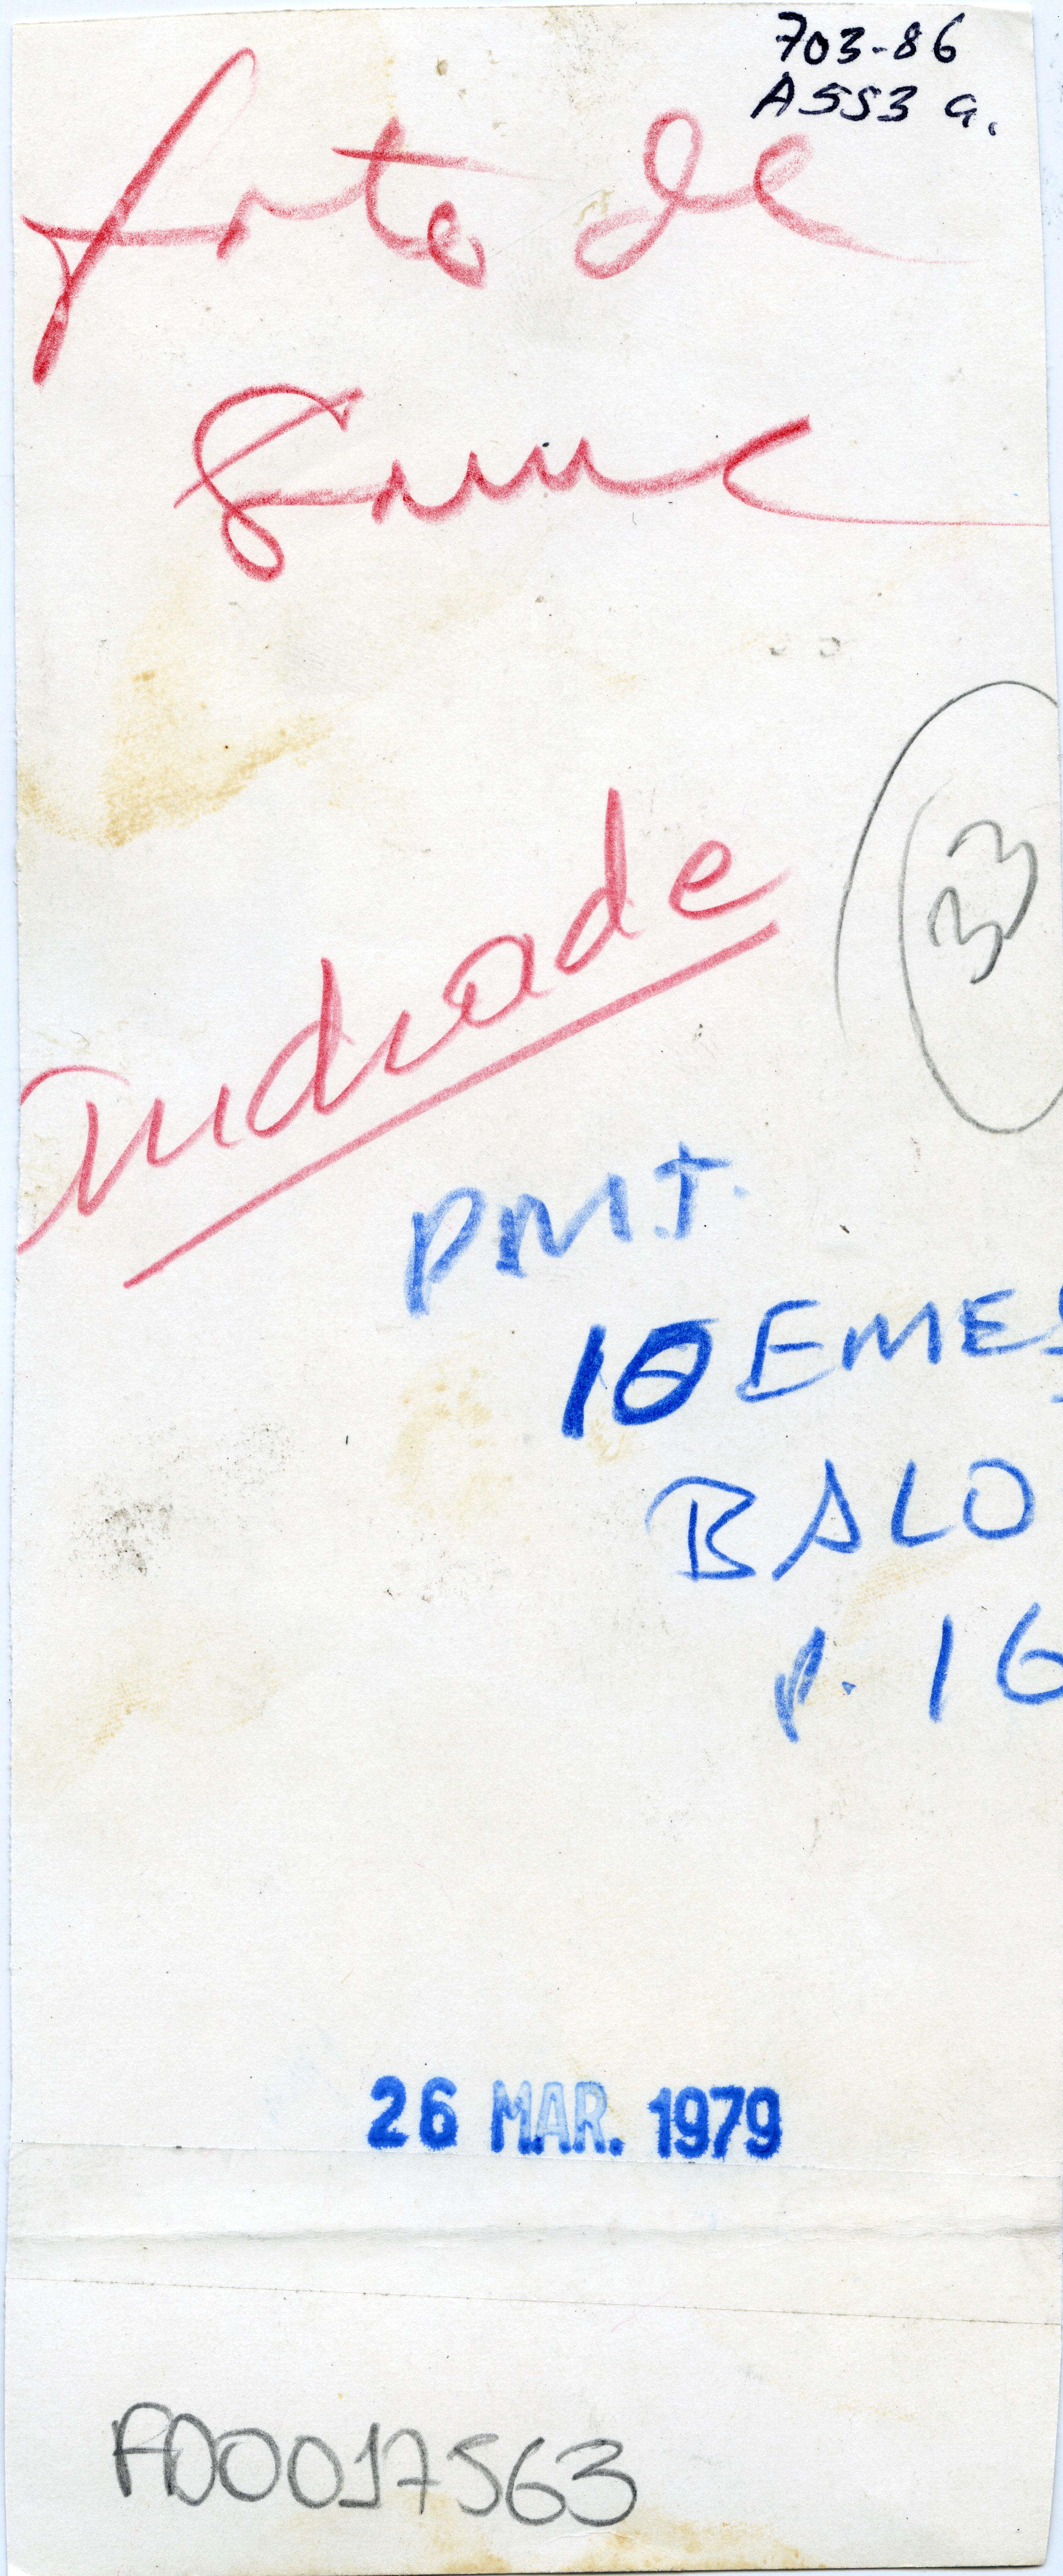 703-86
A553 a.
foto de
33
Andrade
PMT.
10 EMES
BALO
p. 16
26 MAR. 1979
AD0017563